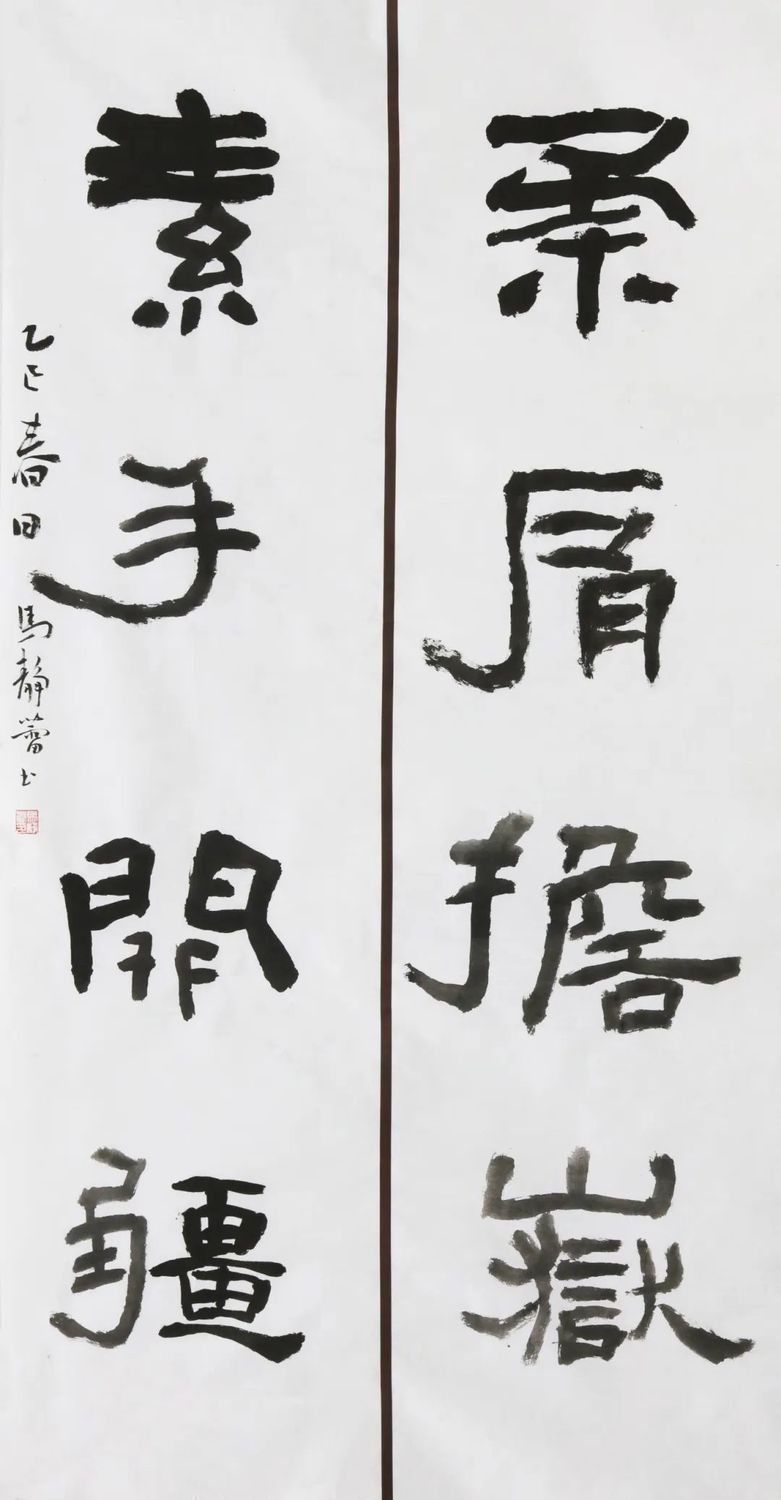 柔肩擔嶽
素手開疆
乙巳春日 馬靜蕾书